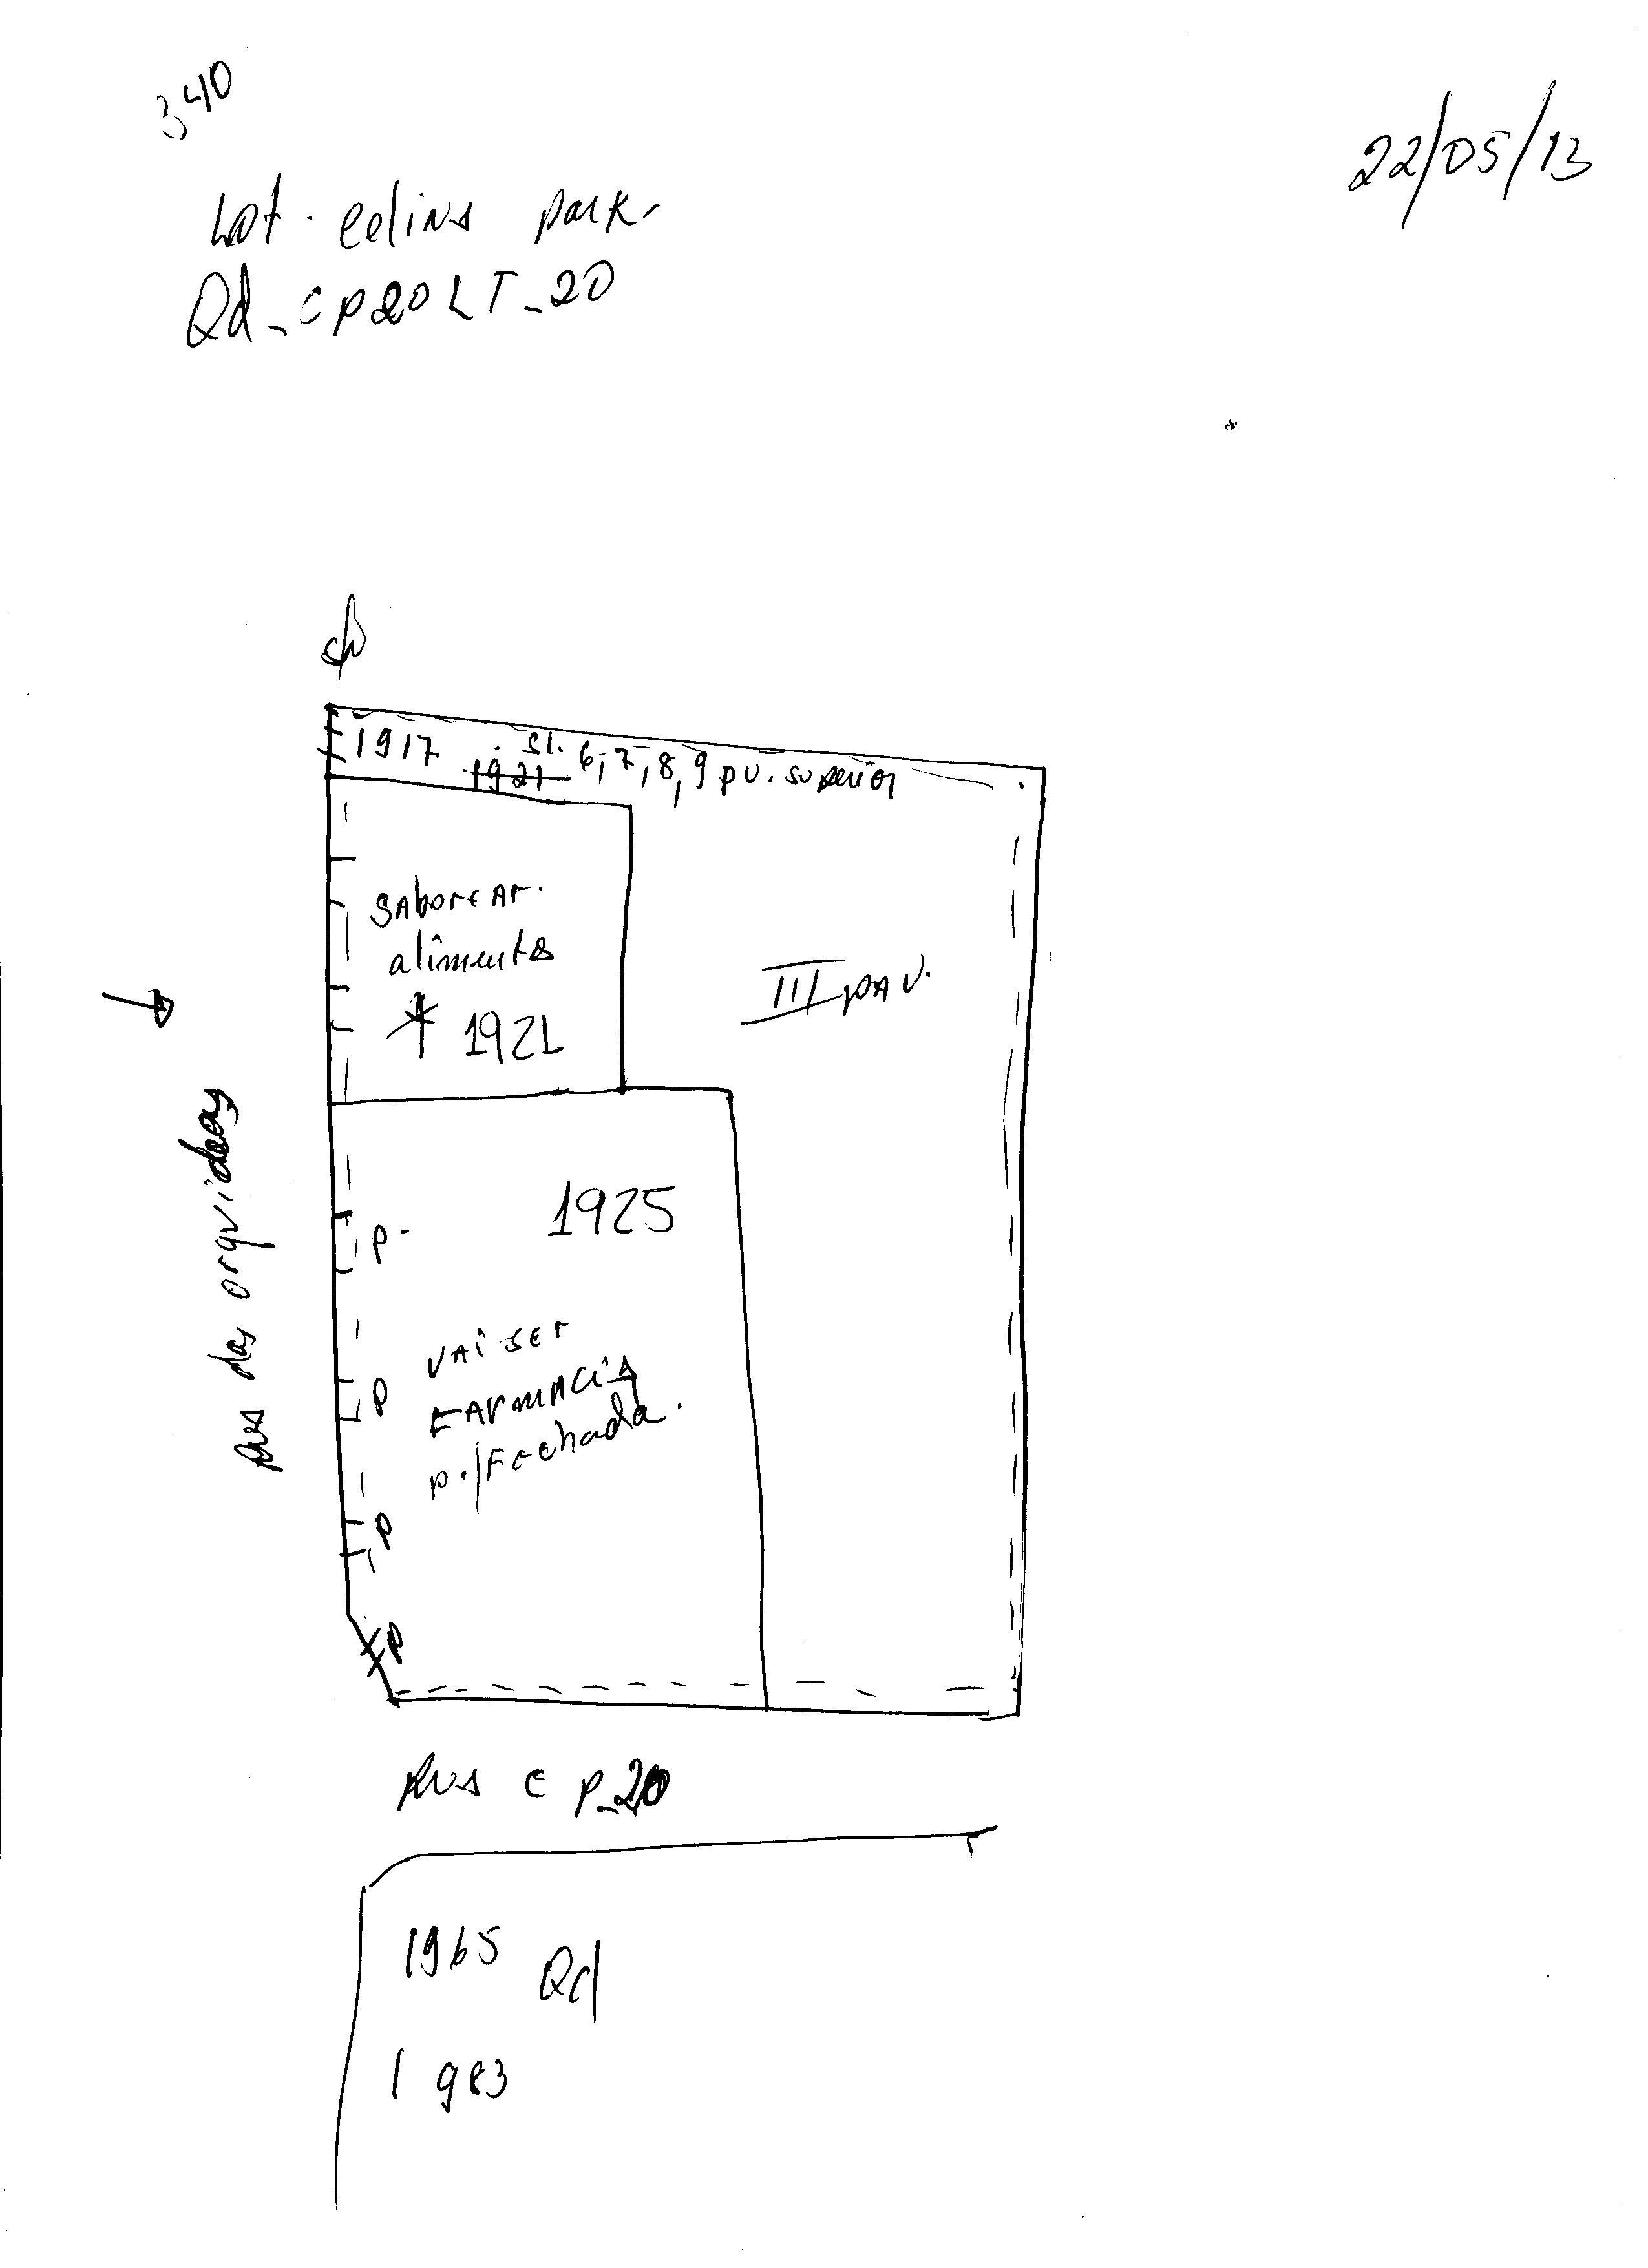 340
22/05/13
Lot. celina park-
Qd_CP20 LT_20
1917
sl. 6,7,8,9 pv. superior
1921
saborear.
alimentos
1921
III pav.
Rua das orquideas
1925
P-
vai ser
farmacia
p./fechada.
P
P
P
Rua C P_20
1965
Qd
1983